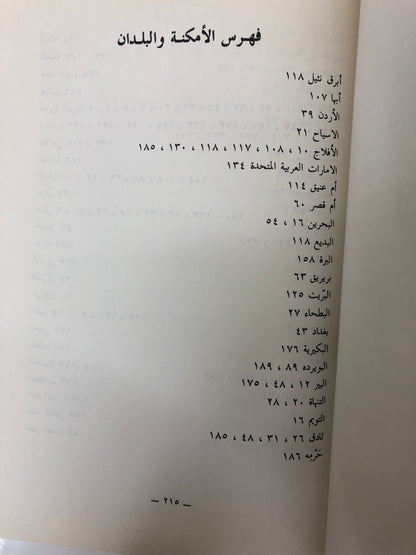 فهرس الأمكنة والبلدان
أبرق نثيل ١١٨
أبها ١٠٧
الأردن ٣٩
الاسياح ٢١
الأفلاج ١٠ ، ١٠٨ ، ١١٧ ، ١١٨ ، ١٣٠ ، ١٨٥
الامارات العربية المتحدة ١٣٤
أم عنيق ١١٤
أم قصر ٦٠
البحرين ١٦ ، ٥٤
البديع ١١٨
البرة ١٥٨
بريريق ٦٣
البُريت ١٢٥
البطحاء ٢٧
بغداد ٤٣
البكيرية ١٧٦
البويرده ٨٩ ، ١٨٩
البير ١٢ ، ٤٨ ، ١٧٥
التنهاة ٢٠ ، ٢٨
التويم ١٦
ثادق ٢٦ ، ٣١ ، ٤٨ ، ١٨٥
حَرْمِه ١٨٦
— ٢١٥ —